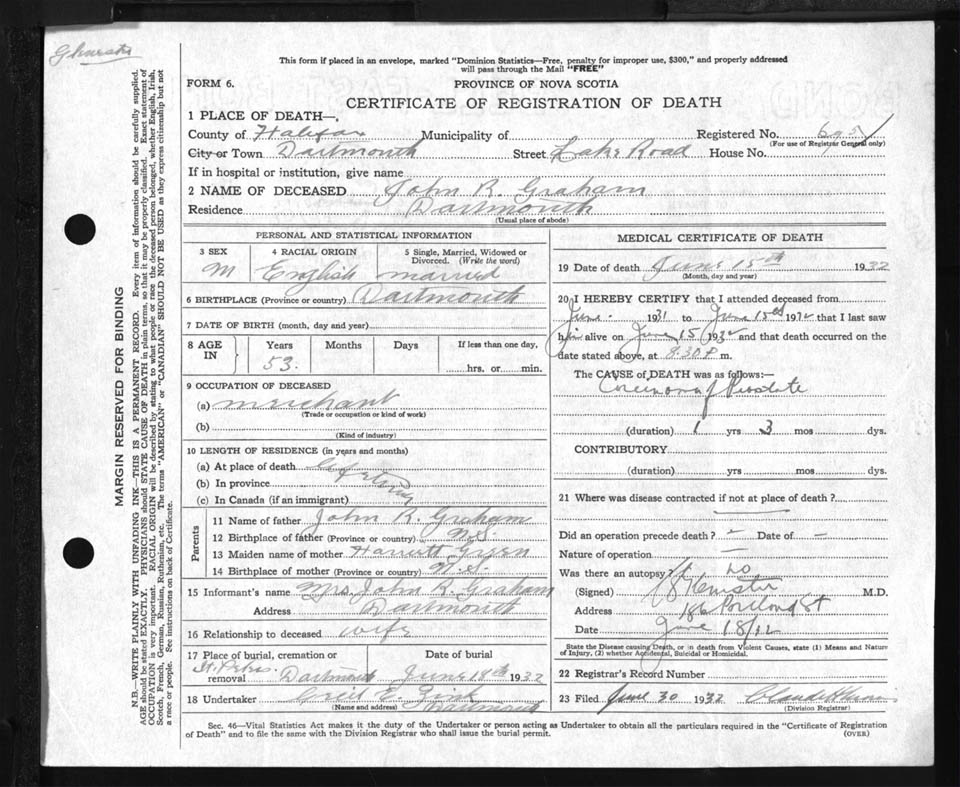 This form if placed in an envelope, marked "Dominion Statistics—Free, penalty for improper use, $300," and properly addressed
will pass through the Mail "FREE"
FORM 6.
PROVINCE OF NOVA SCOTIA
CERTIFICATE OF REGISTRATION OF DEATH
1 PLACE OF DEATH—
County of Halifax Municipality of Registered No.
(For use of Registrar General only)
City or Town Dartmouth Street Lake Road House No.
If in hospital or institution, give name
2 NAME OF DECEASED John R. Graham
Residence Dartmouth
(Usual place of abode)
PERSONAL AND STATISTICAL INFORMATION
3 SEX 4 RACIAL ORIGIN 5 Single, Married, Widowed or Divorced. (Write the word)
M English married
6 BIRTHPLACE (Province or country) Dartmouth
7 DATE OF BIRTH (month, day and year)
8 AGE IN Years Months Days If less than one day,
53. hrs. or min.
9 OCCUPATION OF DECEASED
(a) merchant
(Trade or occupation or kind of work)
(b)
(Kind of industry)
10 LENGTH OF RESIDENCE (in years and months)
(a) At place of death
(b) In province
(c) In Canada (if an immigrant)
Parents
11 Name of father John R. Graham
12 Birthplace of father (Province or country) N.S.
13 Maiden name of mother Harriett Green
14 Birthplace of mother (Province or country) N.S.
15 Informant's name Mrs. John R. Graham
Address Dartmouth
16 Relationship to deceased wife
17 Place of burial, cremation or removal Date of burial
St. Peters Dartmouth June 18th 1932
18 Undertaker E.
(Name and address) Dartmouth
MEDICAL CERTIFICATE OF DEATH
19 Date of death June 15th 1932
(Month, day and year)
20 I HEREBY CERTIFY that I attended deceased from
June 1931 to June 15th 1932 that I last saw
him alive on June 15 1932 and that death occurred on the
date stated above, at 8.30 P m.
The CAUSE of DEATH was as follows:—
Carcinoma of Prostate
(duration) 1 yrs 3 mos dys.
CONTRIBUTORY
(duration) yrs mos dys.
21 Where was disease contracted if not at place of death?
Did an operation precede death? – Date of –
Nature of operation —
Was there an autopsy? no
(Signed) M.D.
Address 186 Portland St
Date June 18/32
State the Disease causing Death, or in death from Violent Causes, state (1) Means and Nature
of Injury, (2) whether Accidental, Suicidal or Homicidal.
22 Registrar's Record Number
23 Filed June 30 1932
(Division Registrar)
Sec. 46—Vital Statistics Act makes it the duty of the Undertaker or person acting as Undertaker to obtain all the particulars required in the "Certificate of Registration
of Death" and to file the same with the Division Registrar who shall issue the burial permit. (OVER)
MARGIN RESERVED FOR BINDING
N.B.—WRITE PLAINLY WITH UNFADING INK—THIS IS A PERMANENT RECORD. Every item of information should be carefully supplied.
AGE should be stated EXACTLY. PHYSICIANS should STATE CAUSE OF DEATH in plain terms, so that it may be properly classified. Exact statement of
OCCUPATION is very important. RACIAL ORIGIN will be described by stating to what people or race the deceased person belonged, whether English, Irish,
Scotch, French, German, Russian, Ruthenian, etc. The terms "AMERICAN" or "CANADIAN" SHOULD NOT BE USED as they express citizenship but not
a race or people. See instructions on back of Certificate.